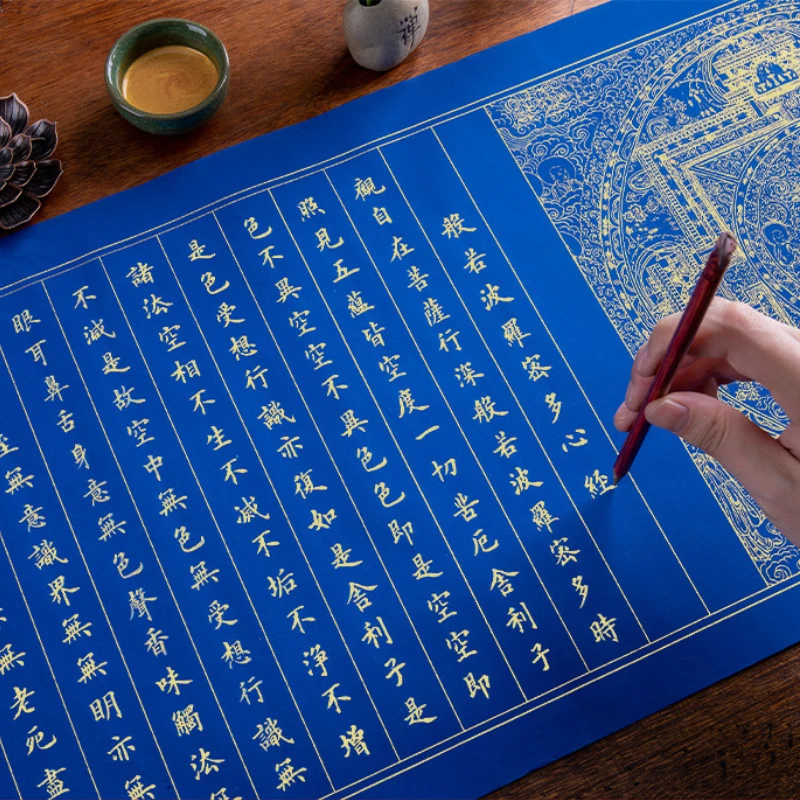 般若波羅密多心經
觀自在菩薩行深般若波羅密多時
照見五蘊皆空度一切苦厄舍利子
色不異空空不異色色即是空空即
是色受想行識亦復如是舍利子是
諸法空相不生不滅不垢不淨不增
不減是故空中無色無受想行識無
眼耳鼻舌身意無色聲香味觸法無
無意識界無無明亦無
無老死盡
禪